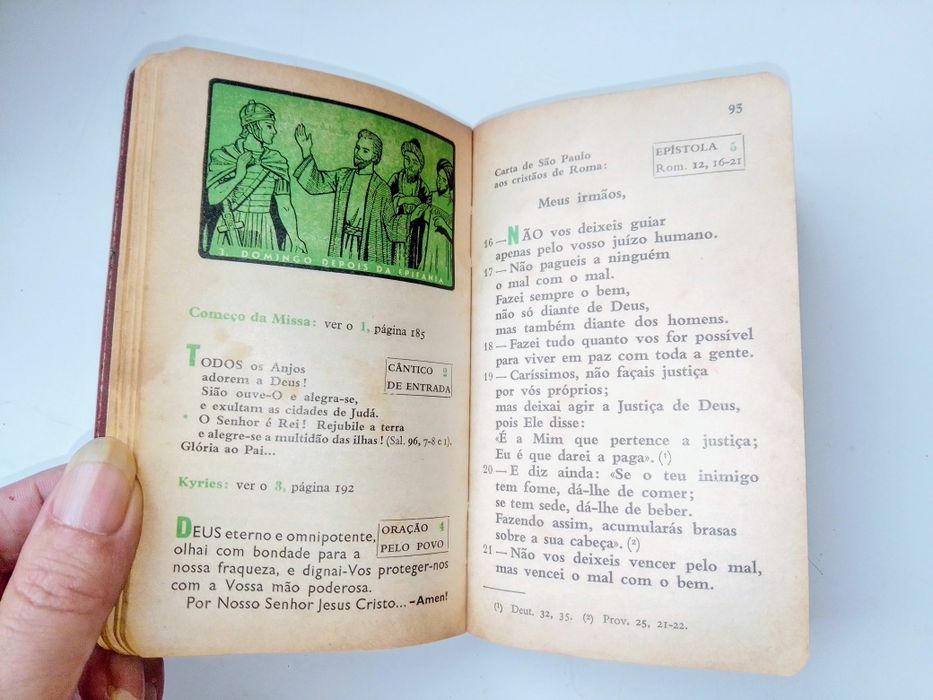 3. DOMINGO DEPOIS DA EPIFANIA
Começo da Missa: ver o 1, página 185
TODOS os Anjos
adorem a Deus!
Sião ouve-O e alegra-se,
e exultam as cidades de Judá.
* O Senhor é Rei! Rejubile a terra
e alegre-se a multidão das ilhas! (Sal. 96, 7-8 e 1).
Glória ao Pai...
CÂNTICO 2
DE ENTRADA
Kyries: ver o 3, página 192
DEUS eterno e omnipotente,
olhai com bondade para a
nossa fraqueza, e dignai-Vos proteger-nos
com a Vossa mão poderosa.
Por Nosso Senhor Jesus Cristo... –Amen!
ORAÇÃO 4
PELO POVO
93
Carta de São Paulo
aos cristãos de Roma:
EPÍSTOLA 5
Rom. 12, 16-21
Meus irmãos,
16 — NÃO vos deixeis guiar
apenas pelo vosso juízo humano.
17 — Não pagueis a ninguém
o mal com o mal.
Fazei sempre o bem,
não só diante de Deus,
mas também diante dos homens.
18 — Fazei tudo quanto vos for possível
para viver em paz com toda a gente.
19 — Caríssimos, não façais justiça
por vós próprios;
mas deixai agir a Justiça de Deus,
pois Ele disse:
«É a Mim que pertence a justiça;
Eu é que darei a paga». (¹)
20 — E diz ainda: «Se o teu inimigo
tem fome, dá-lhe de comer;
se tem sede, dá-lhe de beber.
Fazendo assim, acumularás brasas
sobre a sua cabeça». (²)
21 — Não vos deixeis vencer pelo mal,
mas vencei o mal com o bem.
(¹) Deut. 32, 35. (²) Prov. 25, 21-22.